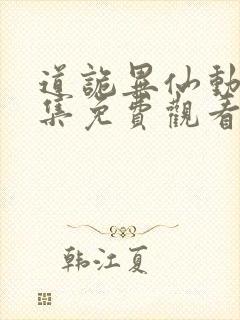 道詭異仙動
集免費觀看
韩江夏